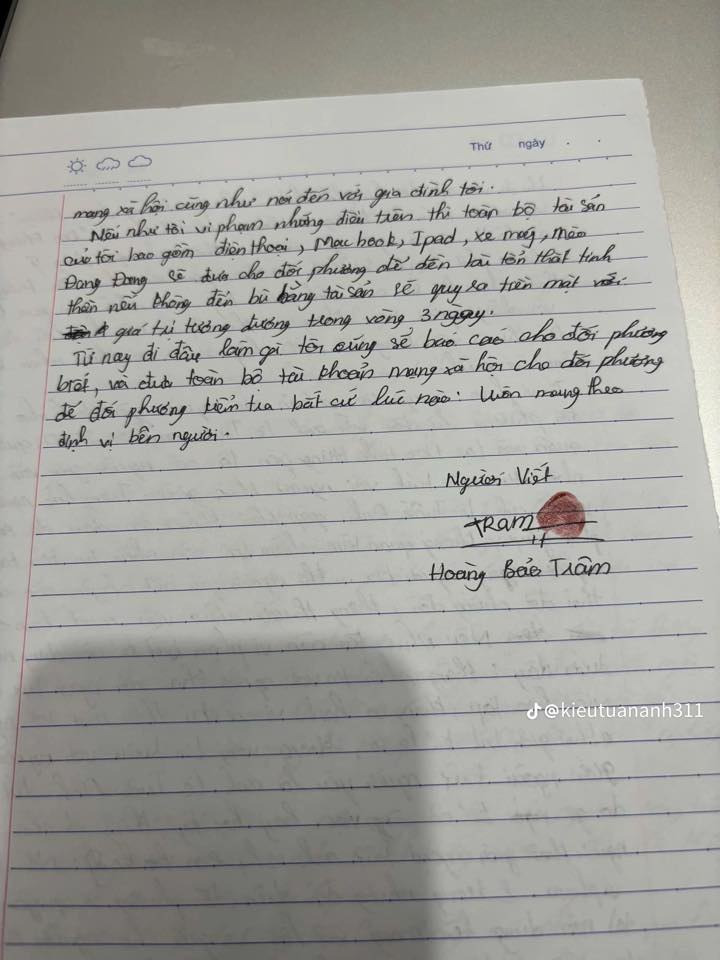 Thứ ngày
mạng xã hội cũng như nói đến với gia đình tôi.
Nếu như tôi vi phạm những điều trên thì toàn bộ tài sản
của tôi bao gồm điện thoại, Macbook, Ipad, xe máy, mèo
Đang Đang sẽ đưa cho đối phương để đền bù tổn thất tinh
thần nếu không đền bù bằng tài sản sẽ quy ra tiền mặt với
giá trị tương đương trong vòng 3 ngày.
Từ nay đi đâu làm gì tôi cũng sẽ báo cáo cho đối phương
biết, và đưa toàn bộ tài khoản mạng xã hội cho đối phương
để đối phương kiểm tra bất cứ lúc nào. Luôn mang theo
định vị bên người.
Người Viết
Tram
Hoàng Bảo Trâm
@kieutuananh311